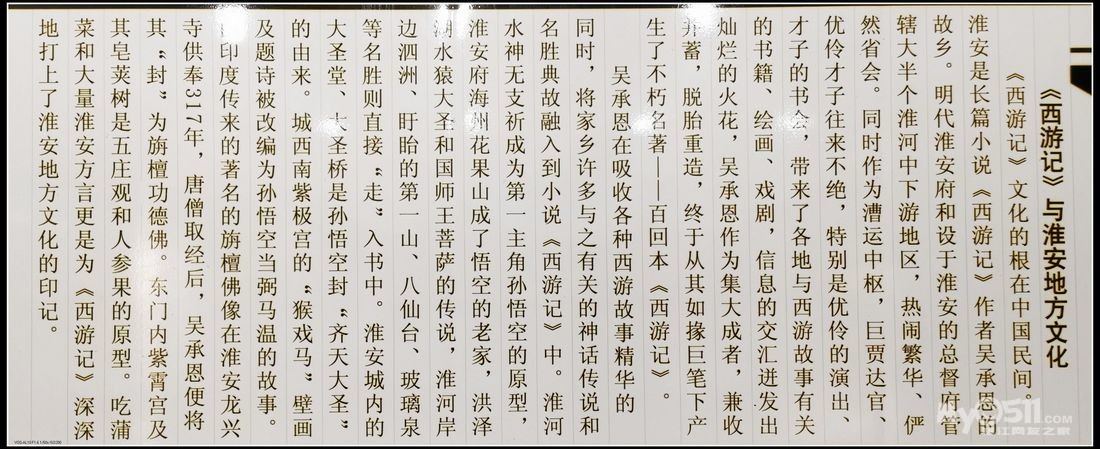 《西游记》与淮安地方文化
《西游记》文化的根在中国民间。
淮安是长篇小说《西游记》作者吴承恩的
故乡。明代淮安府和设于淮安的总督府管
辖大半个淮河中下游地区，热闹繁华、俨
然省会。同时作为漕运中枢，巨贾达官、
优伶才子往来不绝，特别是优伶的演出、
才子的书会，带来了各地与西游故事有关
的书籍、绘画、戏剧，信息的交汇迸发出
灿烂的火花，吴承恩作为集大成者，兼收
并蓄，脱胎重造，终于从其如掾巨笔下产
生了不朽名著——百回本《西游记》。
吴承恩在吸收各种西游故事精华的
同时，将家乡许多与之有关的神话传说和
名胜典故融入到小说《西游记》中。淮河
水神无支祈成为第一主角孙悟空的原型，
淮安府海州花果山成了悟空的老家，洪泽
湖水猿大圣和国师王菩萨的传说，淮河岸
边泗洲、盱眙的第一山、八仙台、玻璃泉
等名胜则直接“走”入书中。淮安城内的
大圣堂、大圣桥是孙悟空封“齐天大圣”
的由来。城西南紫极宫的“猴戏马”壁画
及题诗被改编为孙悟空当弼马温的故事。
印度传来的著名的旃檀佛像在淮安龙兴
寺供奉317年，唐僧取经后，吴承恩便将
其“封”为旃檀功德佛。东门内紫霄宫及
其皂荚树是五庄观和人参果的原型。吃蒲
菜和大量淮安方言更是为《西游记》深深
地打上了淮安地方文化的印记。
my0511.com